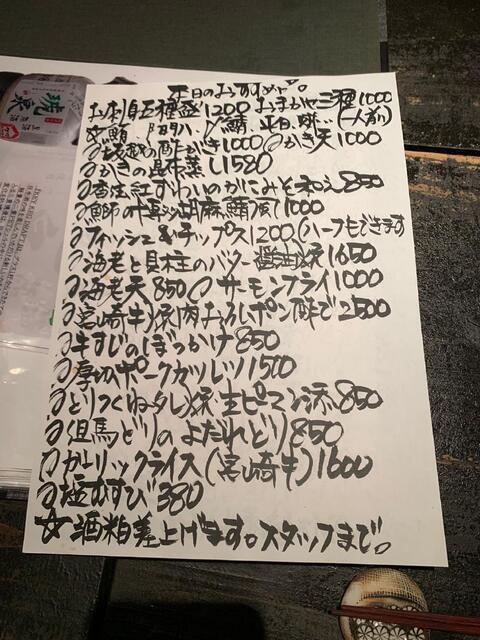 本日のおすすめ。
お刺身五種盛1200 おまかせ三種1000
(一人前)
坂越の酢がき1000 かき天1000
かきの昆布蒸し1580
香住紅ずわいのかにみそ和え850
鰤の胡麻鯖風1000
フィッシュ&チップス1200(ハーフもできます
海老と貝柱のバター醤油焼1650
海老天850 サーモンフライ1000
宮崎牛焼肉おろしポン酢で2500
牛すじのぼっかけ850
厚切ポークカツレツ1500
とりつくねタレ焼 生ピーマン添850
但馬どりのよだれどり850
ガーリックライス(宮崎牛)1600
塩むすび380
☆酒粕差上げます。スタッフまで。
琥泉